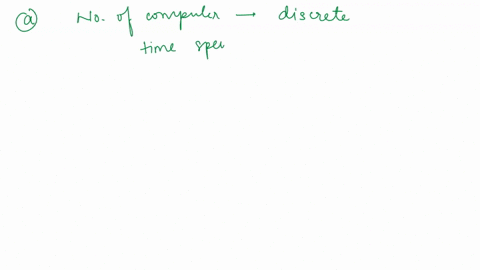 (a) No. of computer → discrete
time spe